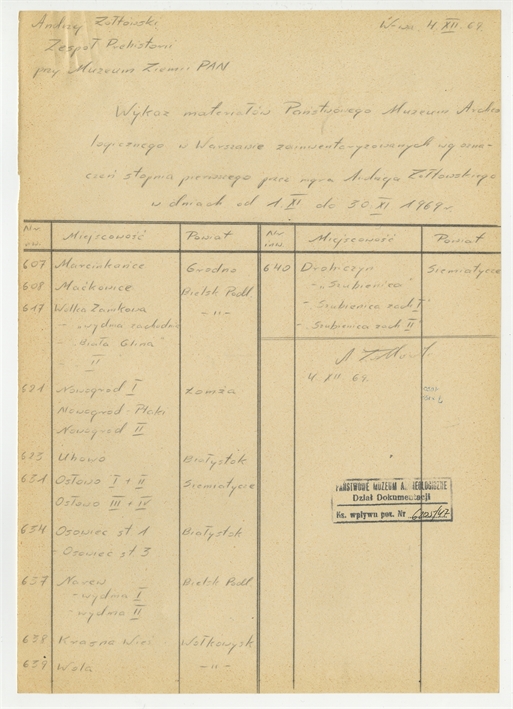 Andrzej Żółtowski
W-wa 4 XII 69.
Zespół Prehistorii
przy Muzeum Ziemi PAN
Wykaz materiałów Państwowego Muzeum Archeo
logicznego w Warszawie zainwentaryzowanych wg ozna-
czeń stopnia pierwszego przez mgra Andrzeja Żółtowskiego
w dniach od 1 XI do 30 XI 1969 r.
Nr inw. Miejscowość Powiat Nr inw. Miejscowość Powiat
607 Marcinkańce Grodno
608 Maćkowicze Bielsk Podl
617 Wólka Zamkowa -"-
- "wydma zachodnia
- "Biała Glina"
- " II
621 Nowogród I Łomża
Nowogród - Ptaki
Nowogród II
623 Uhowo Białystok
631 Osłowo I + II Siemiatycze
Osłowo III + IV
634 Osowiec st 1 Białystok
- Osowiec st. 3
637 Narew Bielsk Podl
- wydma I
- wydma II
638 Krasna Wieś Wołkowysk
639 Wola -"-
640 Drohiczyn Siemiatycze
- "Szubienica"
- "Szubienica zach I"
- "Szubienica zach II
4 XII 69.
PAŃSTWOWE MUZEUM ARCHEOLOGICZNE
Dział Dokumentacji
Ks. wpływu poz. Nr